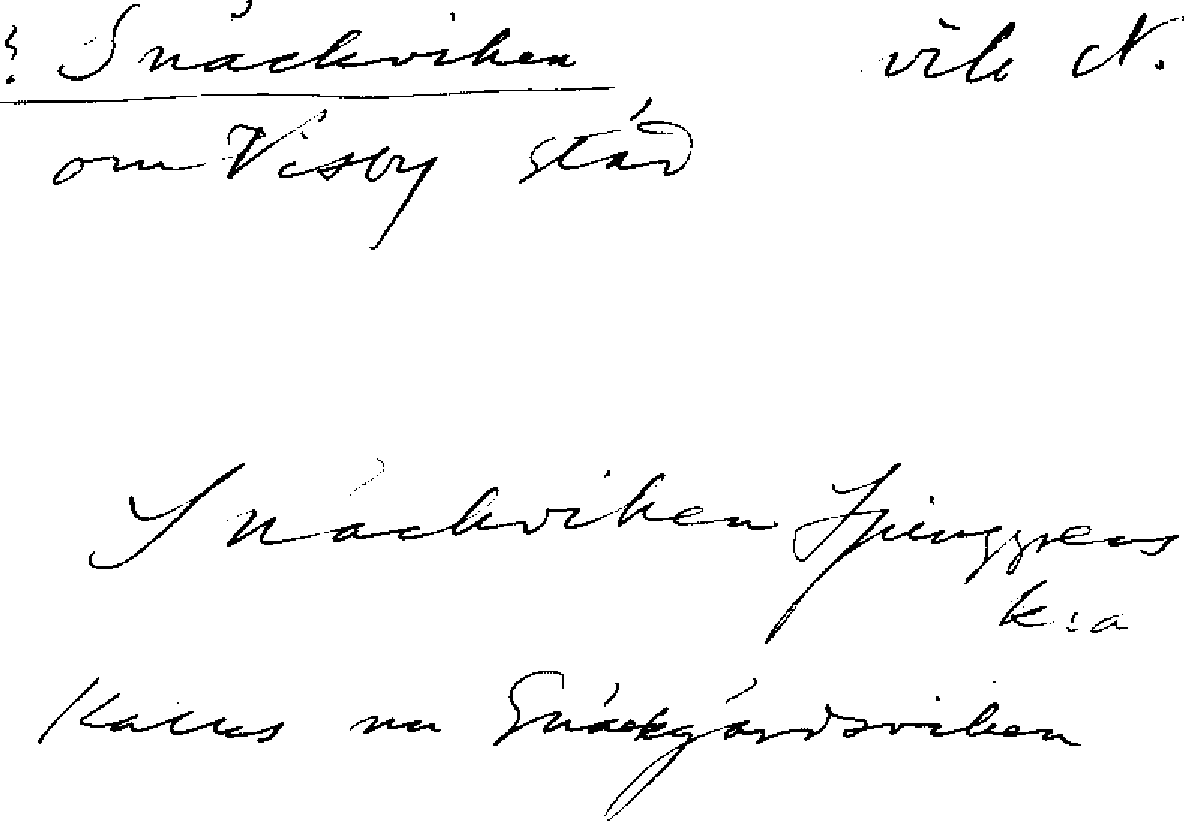 ? Snäckviken vik N.
om Visby stad
Snäckviken Spinggrens
k:a
Kallas nu Snäckgårdsviken